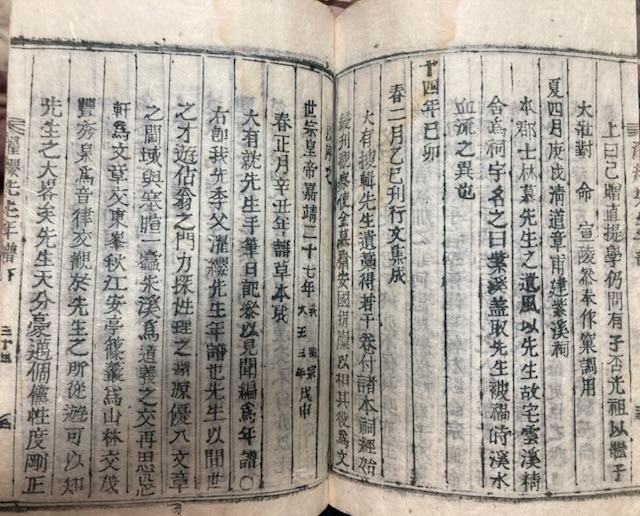 上曰已贈直提學仍問有子否光祖以繼子
大壯對 命 宣陵參奉作窠調用
夏四月庚戌清道章甫建紫溪祠
本郡士林慕先生之遺風以先生故宅雲溪精
舍爲祠宇名之曰紫溪盖取先生被禍時溪水
血流之異也
十四年己卯
春二月乙巳刊行文集成
大有掇輯先生遺藁得若干卷付諸本祠經始
繡刊觀察使金慕齋安國捐廩以相其役爲文
以序之
世宗皇帝嘉靖二十七年 我 明宗大王三年 戊申
春正月辛丑年譜草本成
大有就先生手筆日記叅以見聞編爲年譜○
右卽我先季父濯纓先生年譜也先生以間世
之才遊佔翁之門力探性理之淵源優入文章
之閫域與寒暄一蠹朱溪爲道義之交再思忘
軒爲文章交東峯秋江安亭篠叢爲山林交茂
豐秀泉爲音律交觀於先生之所從遊可以知
先生之大畧矣先生天分豪邁倜儻性度剛正
濯纓先生年譜下 二十三